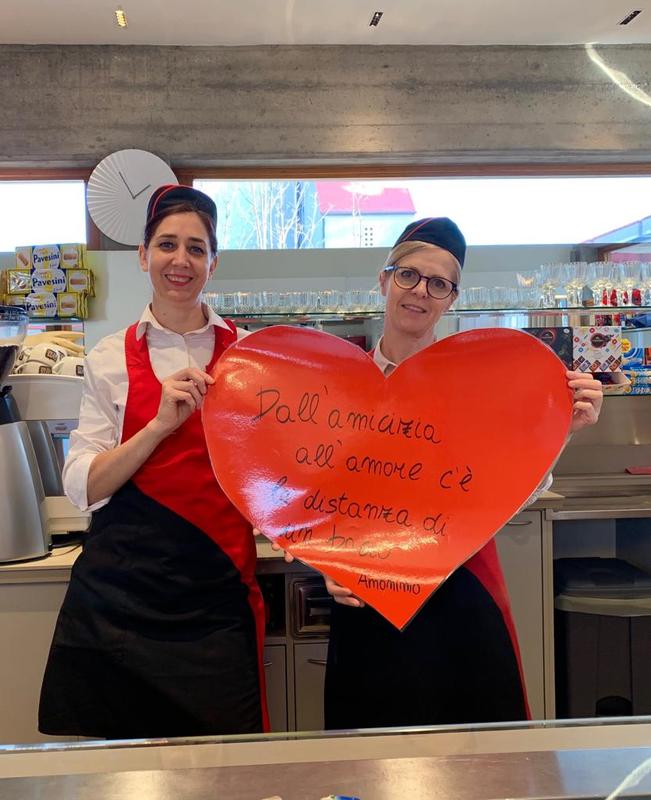 Pavesini
Pavesini
Pavesini
Dall'amicizia
all'amore c'è
la distanza di
un bacio
Anonimo